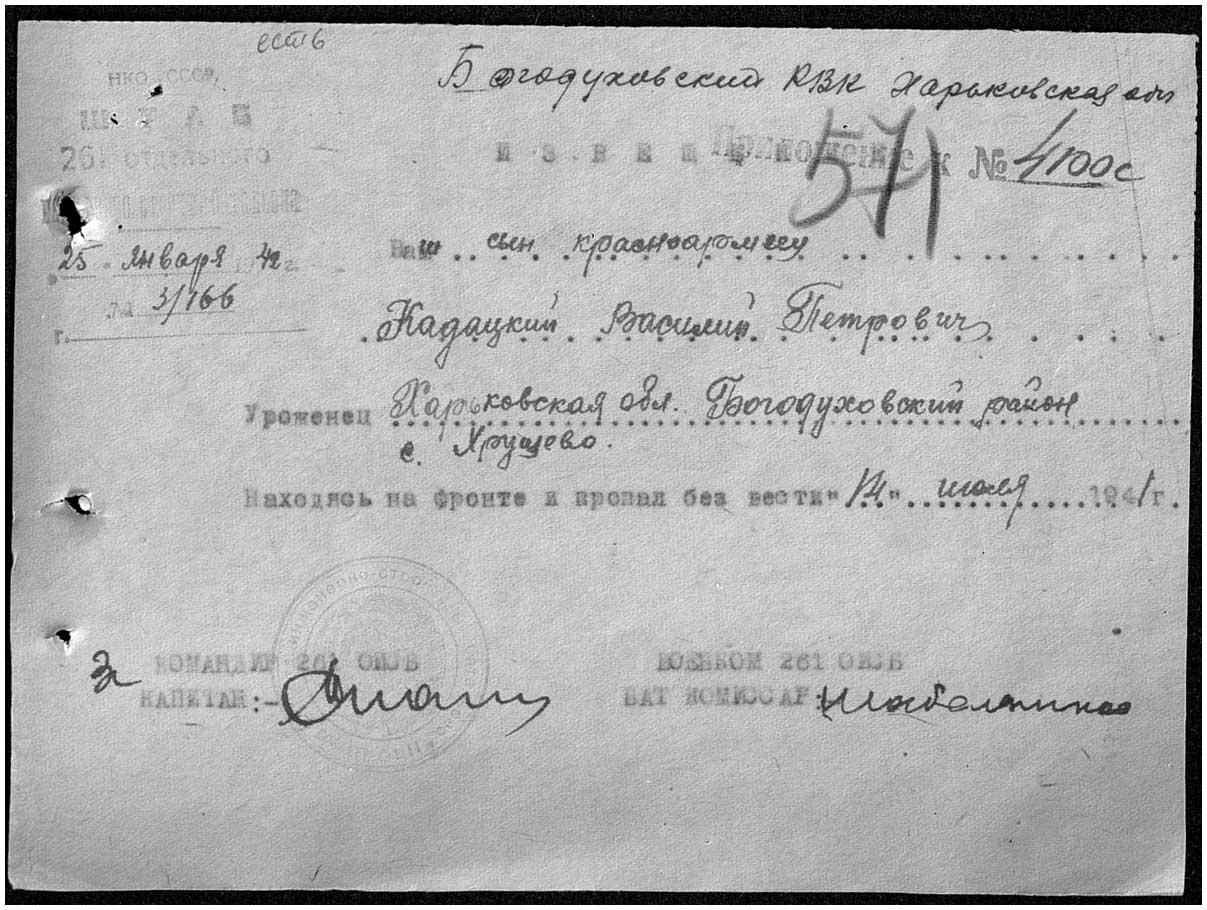 есть
Богодуховский РВК Харьковская обл
НКО СССР,
ШТАБ
261 отдельного
ИЗВЕЩЕНИЕ
Приложение к № 4100с
571
25 января 1942 г.
№ 3/166
г.
Ваш сын красноармеец
Кадацкий Василий Петрович
Уроженец Харьковская обл. Богодуховский район
с. Хрущево.
Находясь на фронте и пропал без вести "14" июля 1941 г.
инженерно-строи
За КОМАНДИР 261 ОИСБ
КАПИТАН:-
ВОЕНКОМ 261 ОИСБ
БАТ КОМИССАР: